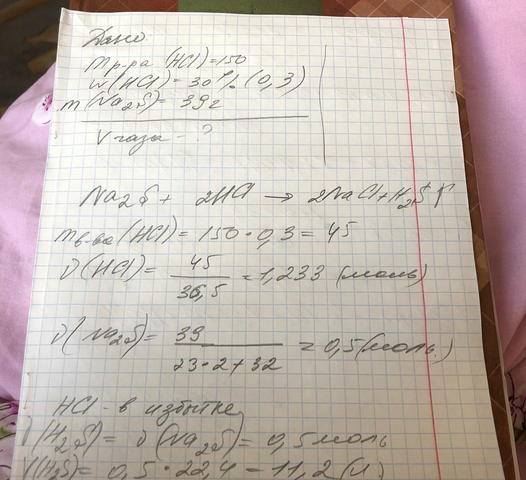 Дано
m р-ра (HCl) = 150
w (HCl) = 30 % (0,3)
m (Na2S) = 39г
V газа - ?
Na2S + 2HCl → 2NaCl + H2S↑
m в-ва (HCl) = 150 · 0,3 = 45
ν (HCl) = 45 / 36,5 = 1,233 (моль)
ν (Na2S) = 39 / 23·2+32 = 0,5 (моль.)
HCl - в избытке
ν (H2S) = ν (Na2S) = 0,5 моль
V (H2S) = 0,5 · 22,4 = 11,2 (л)